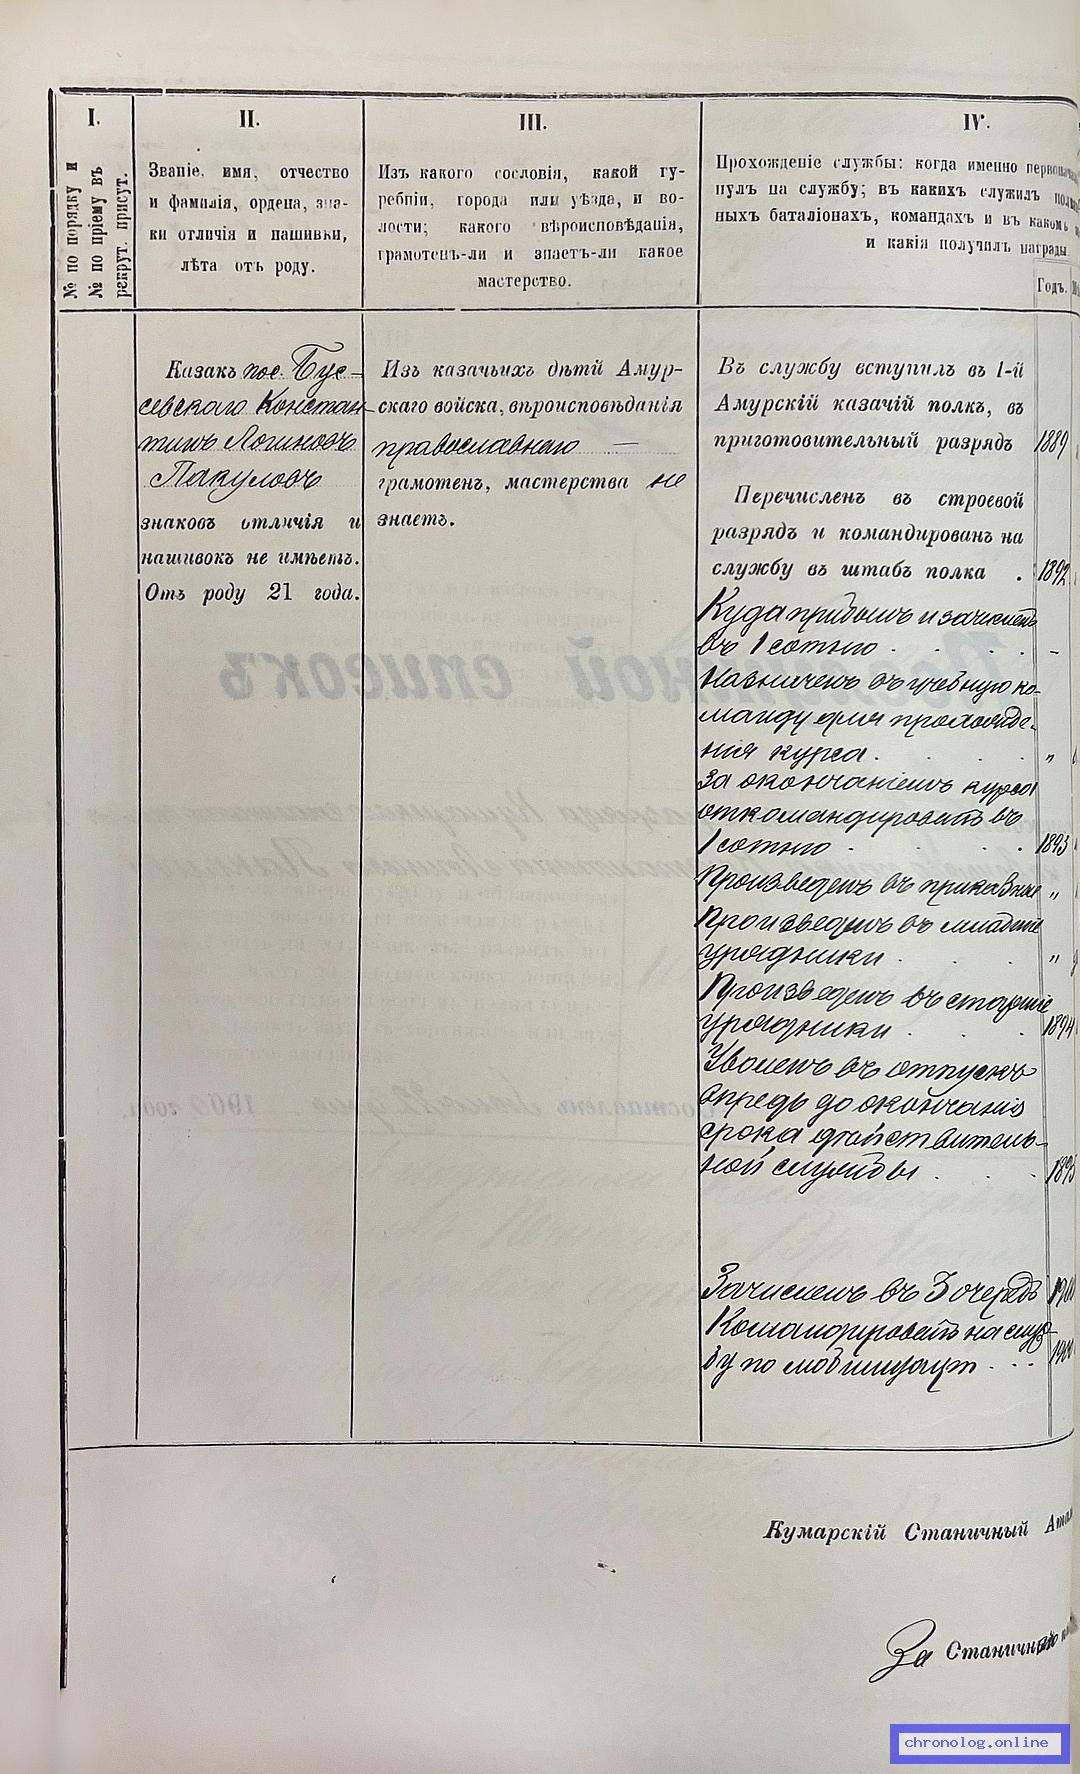 I.
№ по порядку и
№ по пріему въ
рекрут. присут.
II.
Званіе, имя, отчество
и фамилія, ордена, зна-
ки отличія и нашивки,
лѣта отъ роду.
III.
Изъ какого сословія, какой гу-
берніи, города или уѣзда, и во-
лости; какого вѣроисповѣданія,
грамотенъ-ли и знаетъ-ли какое
мастерство.
IV.
Прохожденіе службы: когда именно
нулъ на службу; въ какихъ служилъ
ныхъ баталіонахъ, командахъ и въ какомъ
и какія получилъ награды.
Годъ.
Казакъ пос. Бус-
севскаго Констан-
тинъ Логиновъ
Пакуловъ
знаковъ отличія и
нашивокъ не имѣетъ.
Отъ роду 21 года.
Изъ казачьихъ дѣтій Амур-
скаго войска, вѣроисповѣданія
православнаго —
грамотенъ, мастерства не
знаетъ.
Въ службу вступилъ въ 1-й
Амурскій казачій полкъ, въ
приготовительный разрядъ 1889
Перечисленъ въ строевой
разрядъ и командированъ на
службу въ штабъ полка . 1892
Куда прибылъ и зачисленъ
въ 1 сотню . . . . -
Назначенъ въ учебную ко-
манду для прохожде-
нія курса . . . . "
За окончаніемъ курса
откомандированъ въ
1 сотню . . . . 1893
Произведенъ въ приказные "
Произведенъ въ младшіе
урядники . . . "
Произведенъ въ старшіе
урядники . . . 1894
Уволенъ въ отпускъ
впредь до окончанія
срока дѣйствитель-
ной службы . . . 1895
Зачисленъ въ 3 очередь
Командированъ на служ-
бу по мобилизаціи . . .
Кумарскій Станичный
За Станичнаго
chronolog.online